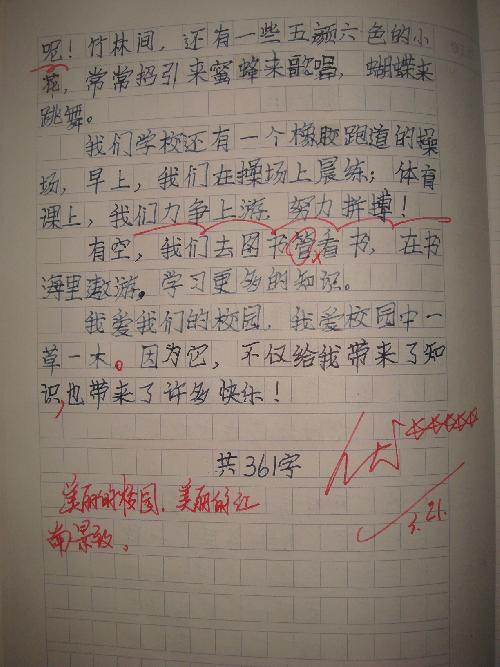 呢！竹林间，还有一些五颜六色的小
花，常常招引来蜜蜂来歌唱，蝴蝶来
跳舞。
我们学校还有一个橡胶跑道的操
场，早上，我们在操场上晨练；体育
课上，我们力争上游，努力拼搏！
有空，我们去图书管看书，在书
海里遨游。学习更多的知识。
我爱我们的校园，我爱校园中一
草一木。因为它，不仅给我带来了知
识，也带来了许多快乐！
共361字
优
美丽的校园，美丽的红
南景致。